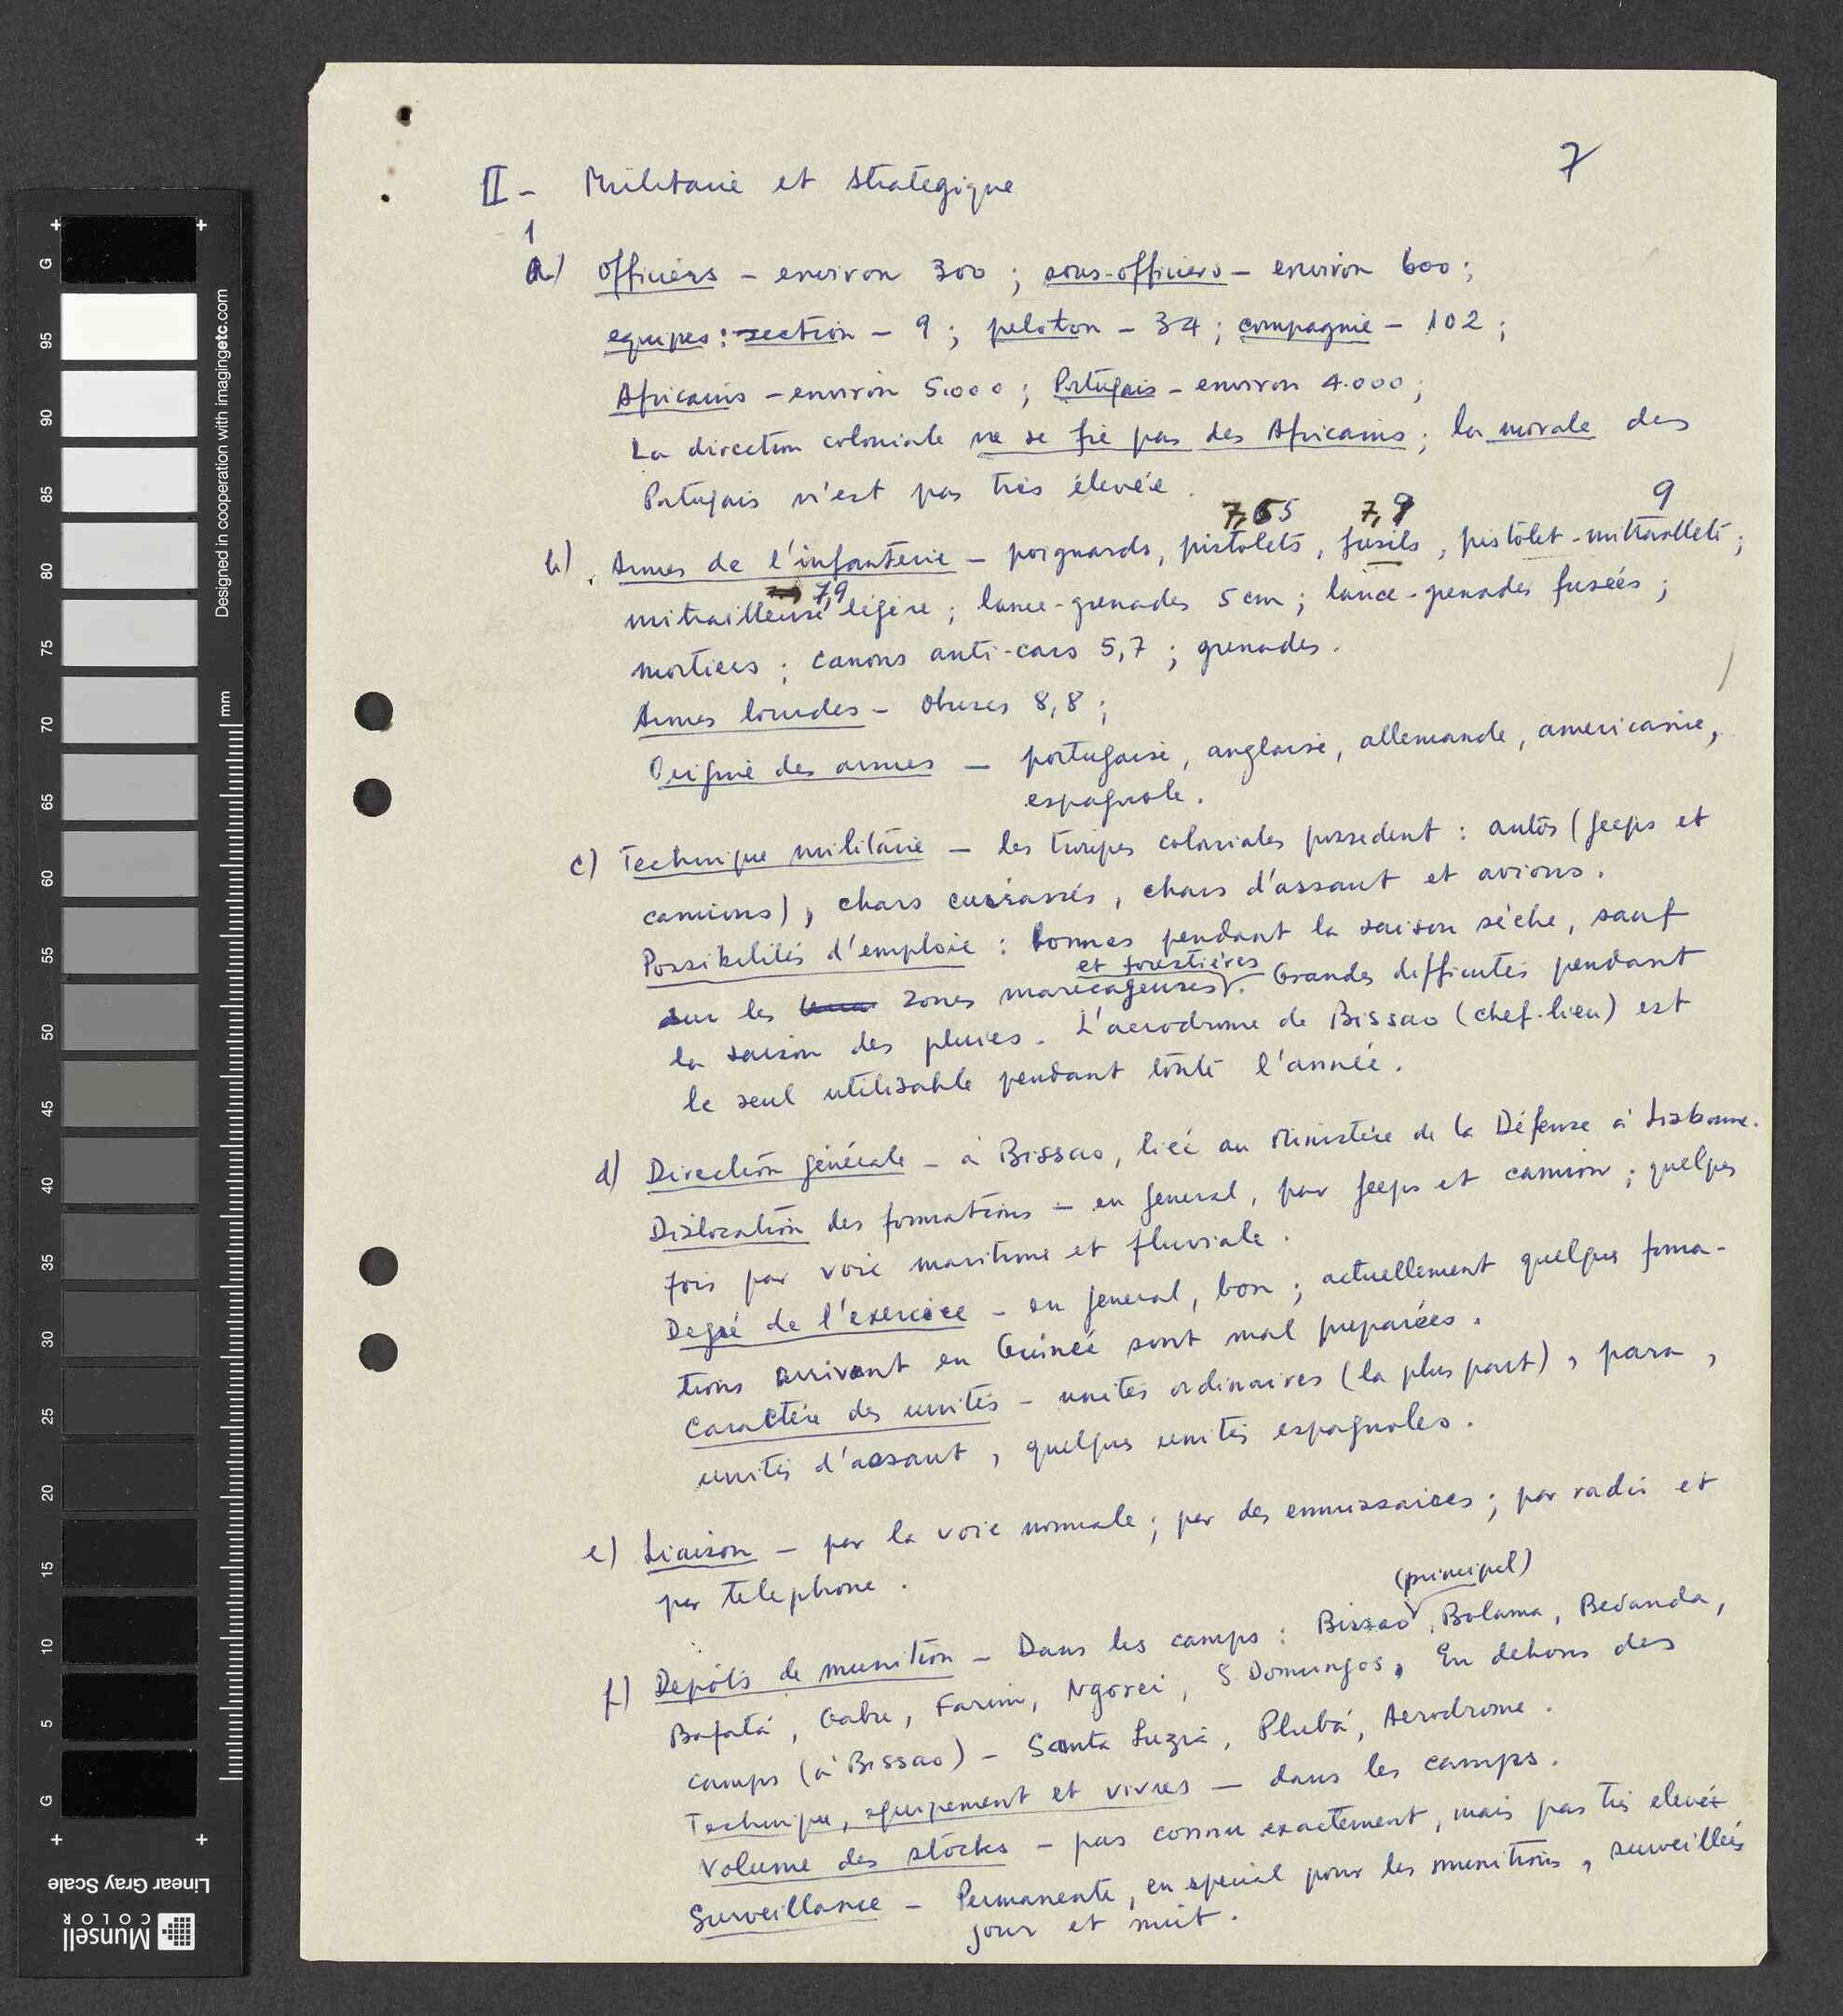 7
II - Militaire et strategique
1
a) Officiers - environ 300 ; sous-officiers - environ 600 ;
equipes : section - 9 ; peloton - 34 ; compagnie - 102 ;
Africains - environ 5.000 ; Portugais - environ 4.000 ;
La direction coloniale ne se fie pas des Africains ; la morale des
Portugais n'est pas très élevée.
7,65 7,9 9
b) Armes de l'infanterie - poignards, pistolets, fusils, pistolet-mitraillete ;
7,9
mitrailleuse légère ; lance-grenades 5 cm ; lance-grenades fusées ;
mortiers ; canons anti-cars 5,7 ; grenades.
Armes lourdes - obuses 8,8 ;
Origine des armes - portugaise, anglaise, allemande, americaine,
espagnole.
c) Technique militaire - les troupes coloniales possedent : autos (jeeps et
camions), chars cuirassés, chars d'assaut et avions.
Possibilités d'emploie : bonnes pendant la saison sèche, sauf
et forestières
sur les zones marécageuses. Grandes difficultés pendant
la saison des pluies. L'aerodrome de Bissao (chef-lieu) est
le seul utilisable pendant toute l'année.
d) Direction générale - à Bissao, liée au Ministère de la Défense à Lisbonne.
Dislocation des formations - en general, par jeeps et camion ; quelques
fois par voie maritime et fluviale.
Degré de l'exercice - en general, bon ; actuellement quelques forma-
tions arrivant en Guinée sont mal preparées.
Caractère des unités - unités ordinaires (la plus part), para,
unités d'assaut, quelques unités espagnoles.
e) Liaison - par la voie normale ; par des emmissaires ; par radio et
par telephone.
(principal)
f) Depôts de munition - Dans les camps : Bissao, Bolama, Bedanda,
Bafatá, Gabu, Farim, Ngorei, S. Domingos. En dehors des
camps (à Bissao) - Santa Luzia, Plubá, Aerodrome.
Technique, equipement et vivres - dans les camps.
Volume des stocks - pas connu exactement, mais pas très elevé
Surveillance - Permanente, en special pour les munitions, surveillés
jour et nuit.
Designed in cooperation with imagingetc.com
mm
G
95
90
85
80
75
70
65
60
55
50
45
40
35
30
25
20
15
10
5
G
Linear Gray Scale
Munsell
COLOR